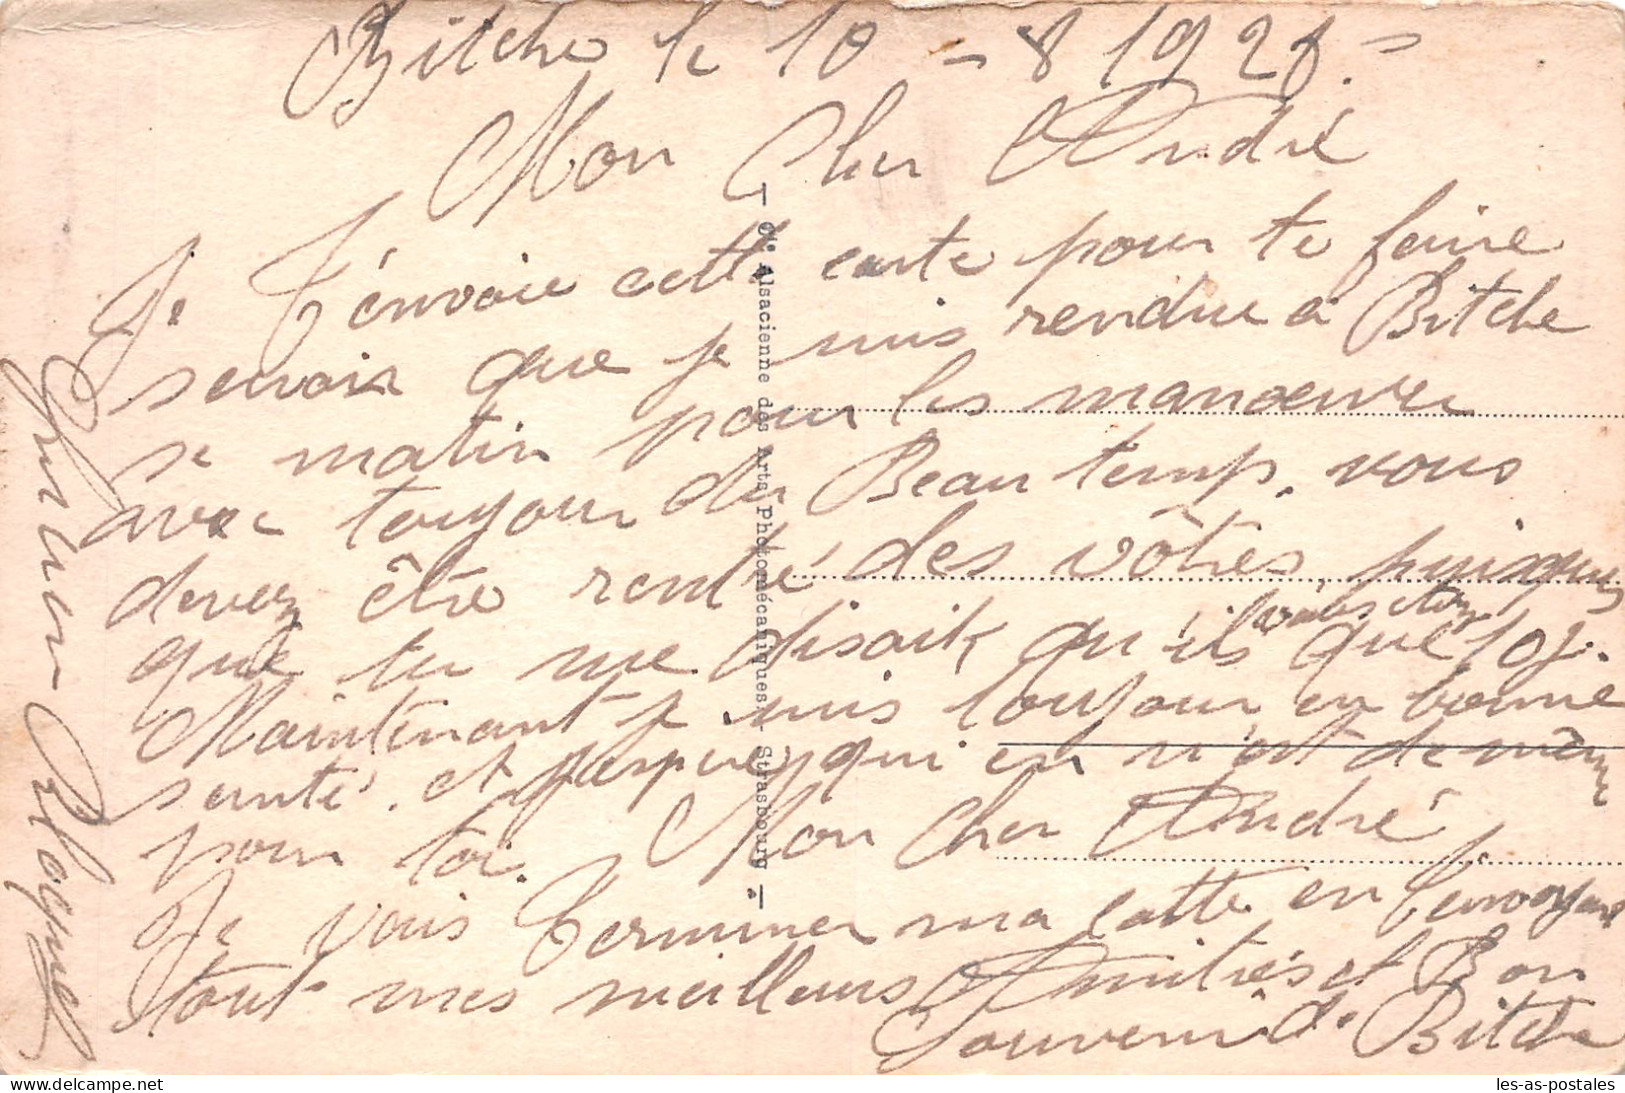 Bitche le 10 - 8 1928.
Mon Cher André
Je t'envoie cette carte pour te faire
savoir que je suis rendue a Bitche
se matin pour les manoeuvre
avec toujour du Beau temp. vous
devez être rentré des vôtres puisque
que tu me disait qu'ils que 10j.
Maintenant je suis toujour en bonne
santé. et j'espère qui en n'est de même
pour toi. Mon Cher André
Je vais terminer ma catte en t'envoyant
tout mes meilleurs Amitiés et Bon
Souvenir de Bitche
Cie Alsacienne des Arts Photomécaniques - Strasbourg
les-as-postales